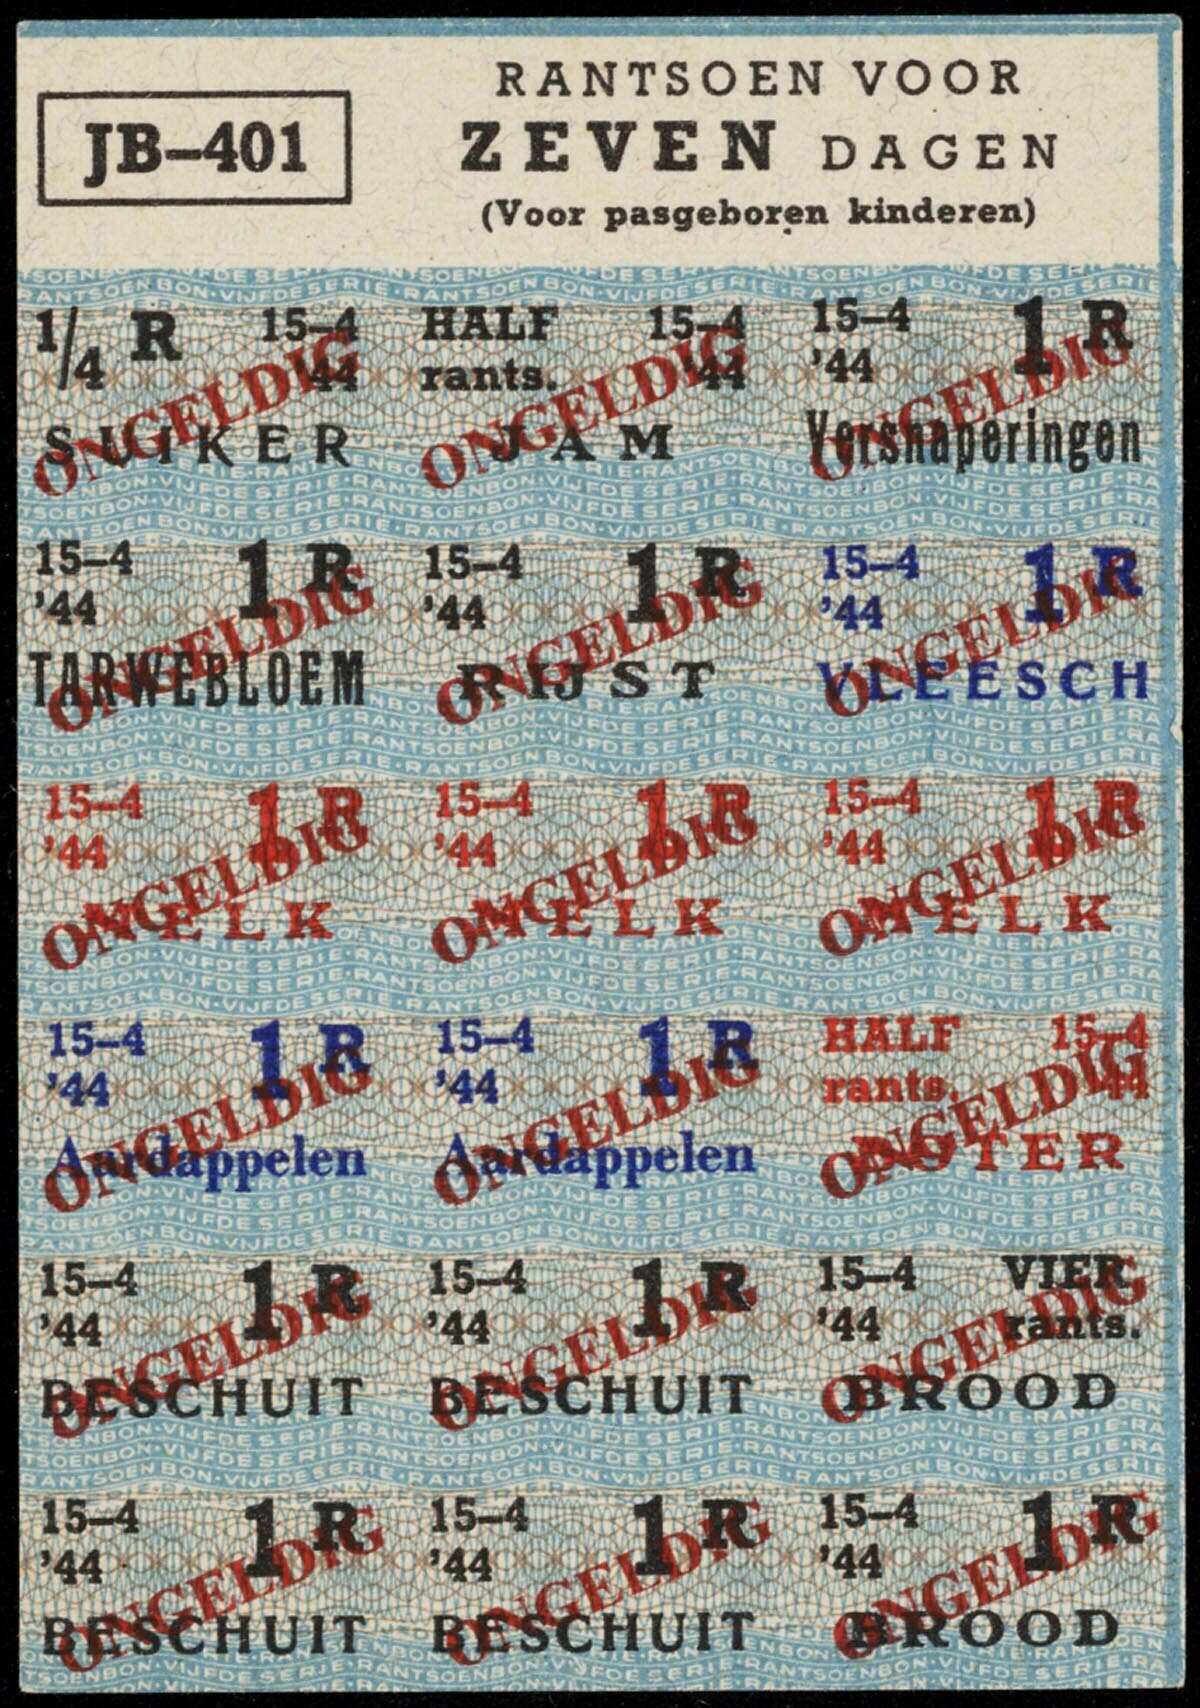 JB–401
RANTSOEN VOOR
ZEVEN DAGEN
(Voor pasgeboren kinderen)
1/4 R 15–4 '44
SUIKER
ONGELDIG
HALF rants. 15–4 '44
JAM
ONGELDIG
15–4 '44 1 R
Versnaperingen
ONGELDIG
15–4 '44 1 R
TARWEBLOEM
ONGELDIG
15–4 '44 1 R
RIJST
ONGELDIG
15–4 '44 1 R
VLEESCH
ONGELDIG
15–4 '44 1 R
MELK
ONGELDIG
15–4 '44 1 R
MELK
ONGELDIG
15–4 '44 1 R
MELK
ONGELDIG
15–4 '44 1 R
Aardappelen
ONGELDIG
15–4 '44 1 R
Aardappelen
ONGELDIG
HALF rants. 15–4 '44
BOTER
ONGELDIG
15–4 '44 1 R
BESCHUIT
ONGELDIG
15–4 '44 1 R
BESCHUIT
ONGELDIG
15–4 '44 VIER rants.
BROOD
ONGELDIG
15–4 '44 1 R
BESCHUIT
ONGELDIG
15–4 '44 1 R
BESCHUIT
ONGELDIG
15–4 '44 1 R
BROOD
ONGELDIG
RANTSOENBON·VIJFDE SERIE·